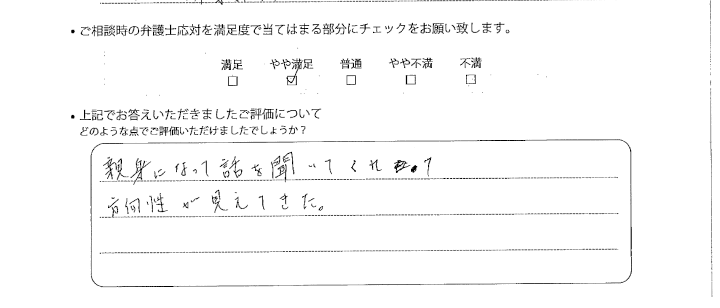 ・ご相談時の弁護士応対を満足度で当てはまる部分にチェックをお願い致します。
満足 やや満足 普通 やや不満 不満
□ ☑ □ □ □
・上記でお答えいただきましたご評価について
どのような点でご評価いただけましたでしょうか？
親身になって話を聞いてくれ て
方向性が見えてきた。